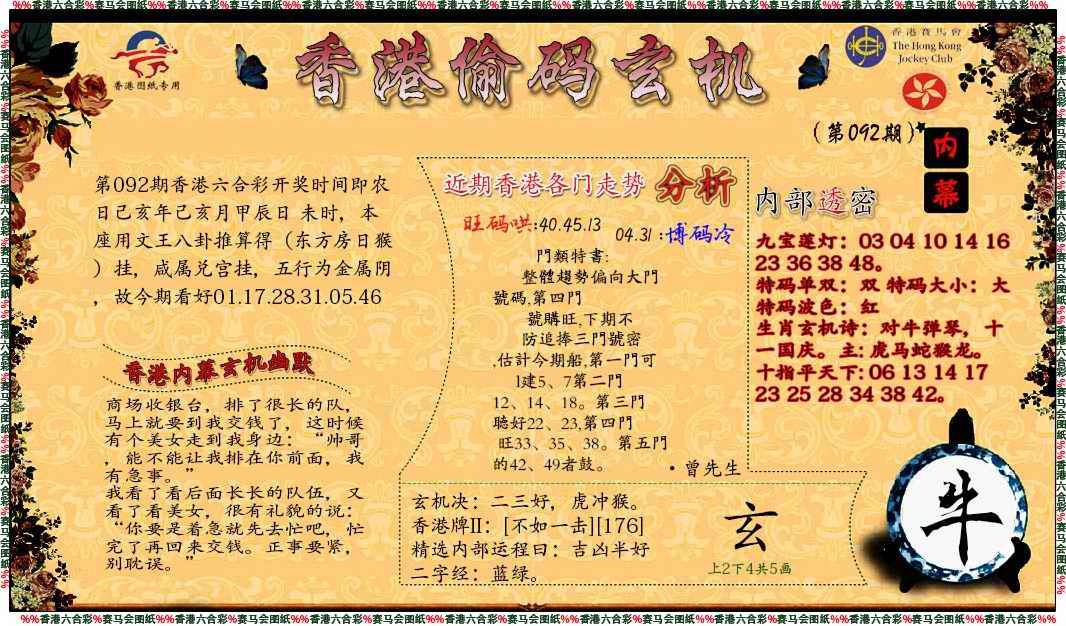 %%香港六合彩%赛马会图纸%%香港六合彩%赛马会图纸%%香港六合彩%赛马会图纸%%香港六合彩%赛马会图纸%%香港六合彩%赛马会图纸%%香港六合彩%赛马会图纸%%
香港图纸专用
香港偷码玄机
香港賽馬會
The Hong Kong
Jockey Club
(第092期)
内
幕
第092期香港六合彩开奖时间即农
日己亥年己亥月甲辰日 未时，本
座用文王八卦推算得（东方房日猴
）挂，咸属兑宫挂，五行为金属阴
，故今期看好01.17.28.31.05.46
香港内幕玄机幽默
商场收银台，排了很长的队，
马上就要到我交钱了，这时候
有个美女走到我身边：“帅哥
，能不能让我排在你前面，我
有急事。”
我看了看后面长长的队伍，又
看了看美女，很有礼貌的说：
“你要是着急就先去忙吧，忙
完了再回来交钱。正事要紧，
别耽误。”
近期香港各门走势 分析
旺码哄:40.45.13
04.31 :博码冷
門類特書:
整體趨勢偏向大門
號碼,第四門
號購旺,下期不
防追捧三門號密
,估計今期船,第一門可
1建5、7第二門
12、14、18。第三門
聽好22、23,第四門
旺33、35、38。第五門
的42、49者鼓。
·曾先生
玄机决：二三好，虎冲猴。
香港牌II：[不如一击][176]
精选内部运程曰：吉凶半好
二字经：蓝绿。
玄
上2下4共5画
内部透密
九宝莲灯：03 04 10 14 16
23 36 38 48。
特码单双：双 特码大小：大
特码波色：红
生肖玄机诗：对牛弹琴，十
一国庆。主: 虎马蛇猴龙。
十指平天下: 06 13 14 17
23 25 28 34 38 42。
牛
%%香港六合彩%赛马会图纸%%香港六合彩%赛马会图纸%%香港六合彩%赛马会图纸%%香港六合彩%赛马会图纸%%香港六合彩%赛马会图纸%%香港六合彩%赛马会图纸%%